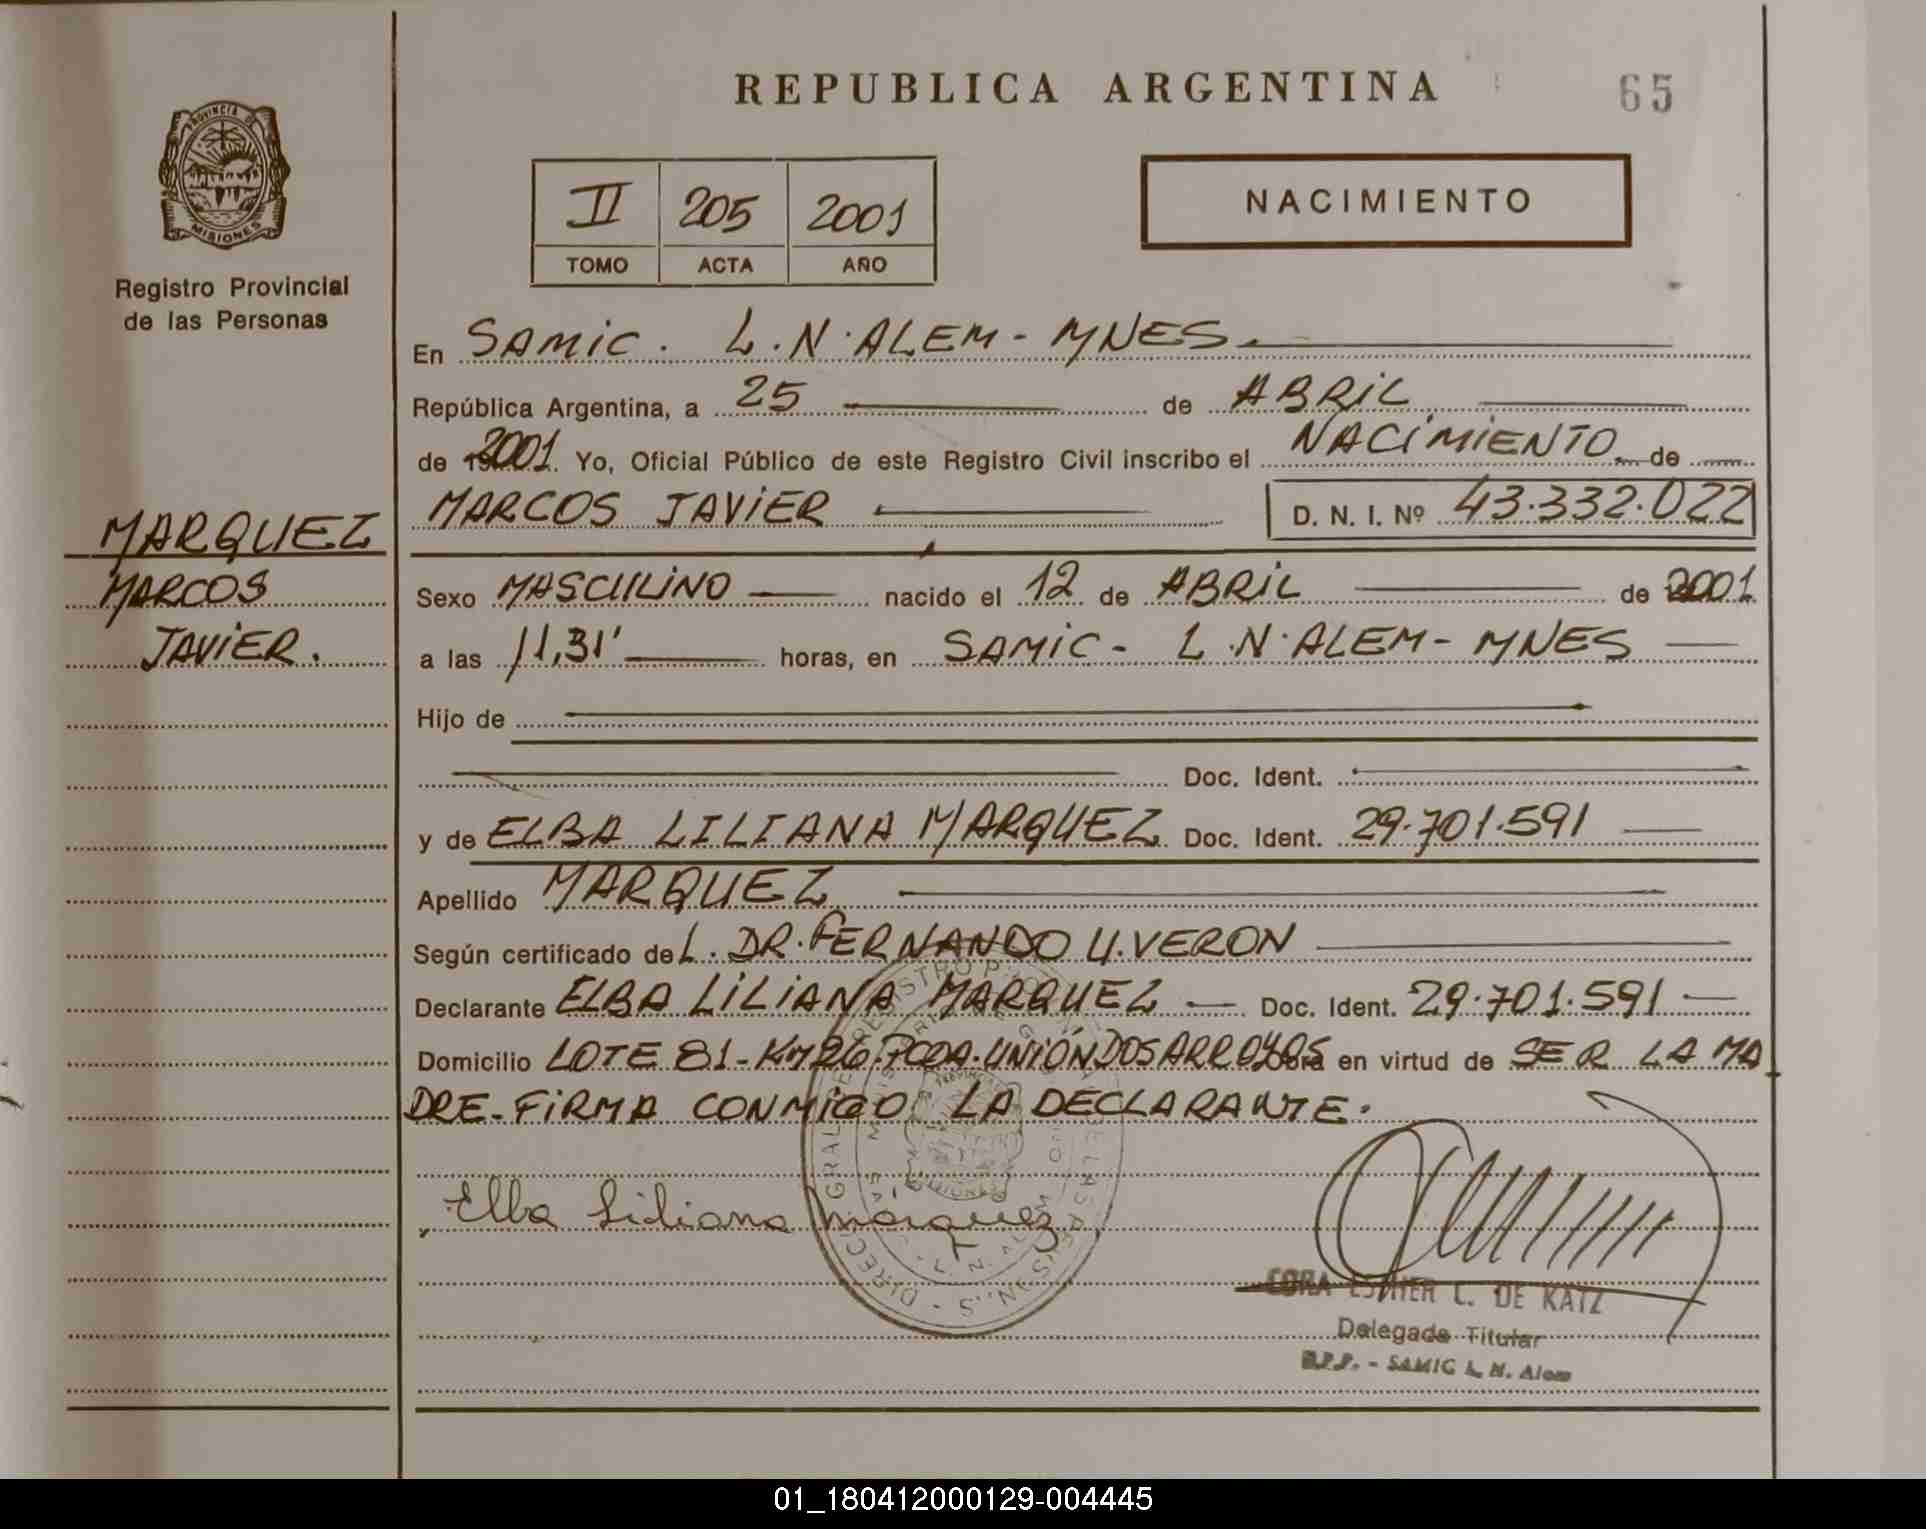 REPUBLICA ARGENTINA
65
PROVINCIA DE
MISIONES
Registro Provincial
de las Personas
II 205 2001
TOMO ACTA AÑO
NACIMIENTO
En SAMIC. L.N. ALEM - MNES.
República Argentina, a 25 de ABRIL
de 2001. Yo, Oficial Público de este Registro Civil inscribo el NACIMIENTO de
MARCOS JAVIER D. N. I. Nº 43.332.022
MARQUEZ
MARCOS
JAVIER.
Sexo MASCULINO nacido el 12 de ABRIL de 2001
a las 11,31' horas, en SAMIC - L.N. ALEM - MNES
Hijo de
Doc. Ident.
y de ELBA LILIANA MARQUEZ Doc. Ident. 29.701.591
Apellido MARQUEZ
Según certificado de L. DR. FERNANDO U. VERON
Declarante ELBA LILIANA MARQUEZ Doc. Ident. 29.701.591
Domicilio LOTE 81 - KM 26. PCDA. UNIÓN DOS ARROYOS obra en virtud de SER LA MA
DRE - FIRMA CONMIGO LA DECLARANTE.
Elba Liliana Marquez
CORA ESTHER L. DE KATZ
Delegada Titular
R.P.P. - SAMIC L. N. Alem
01_180412000129-004445